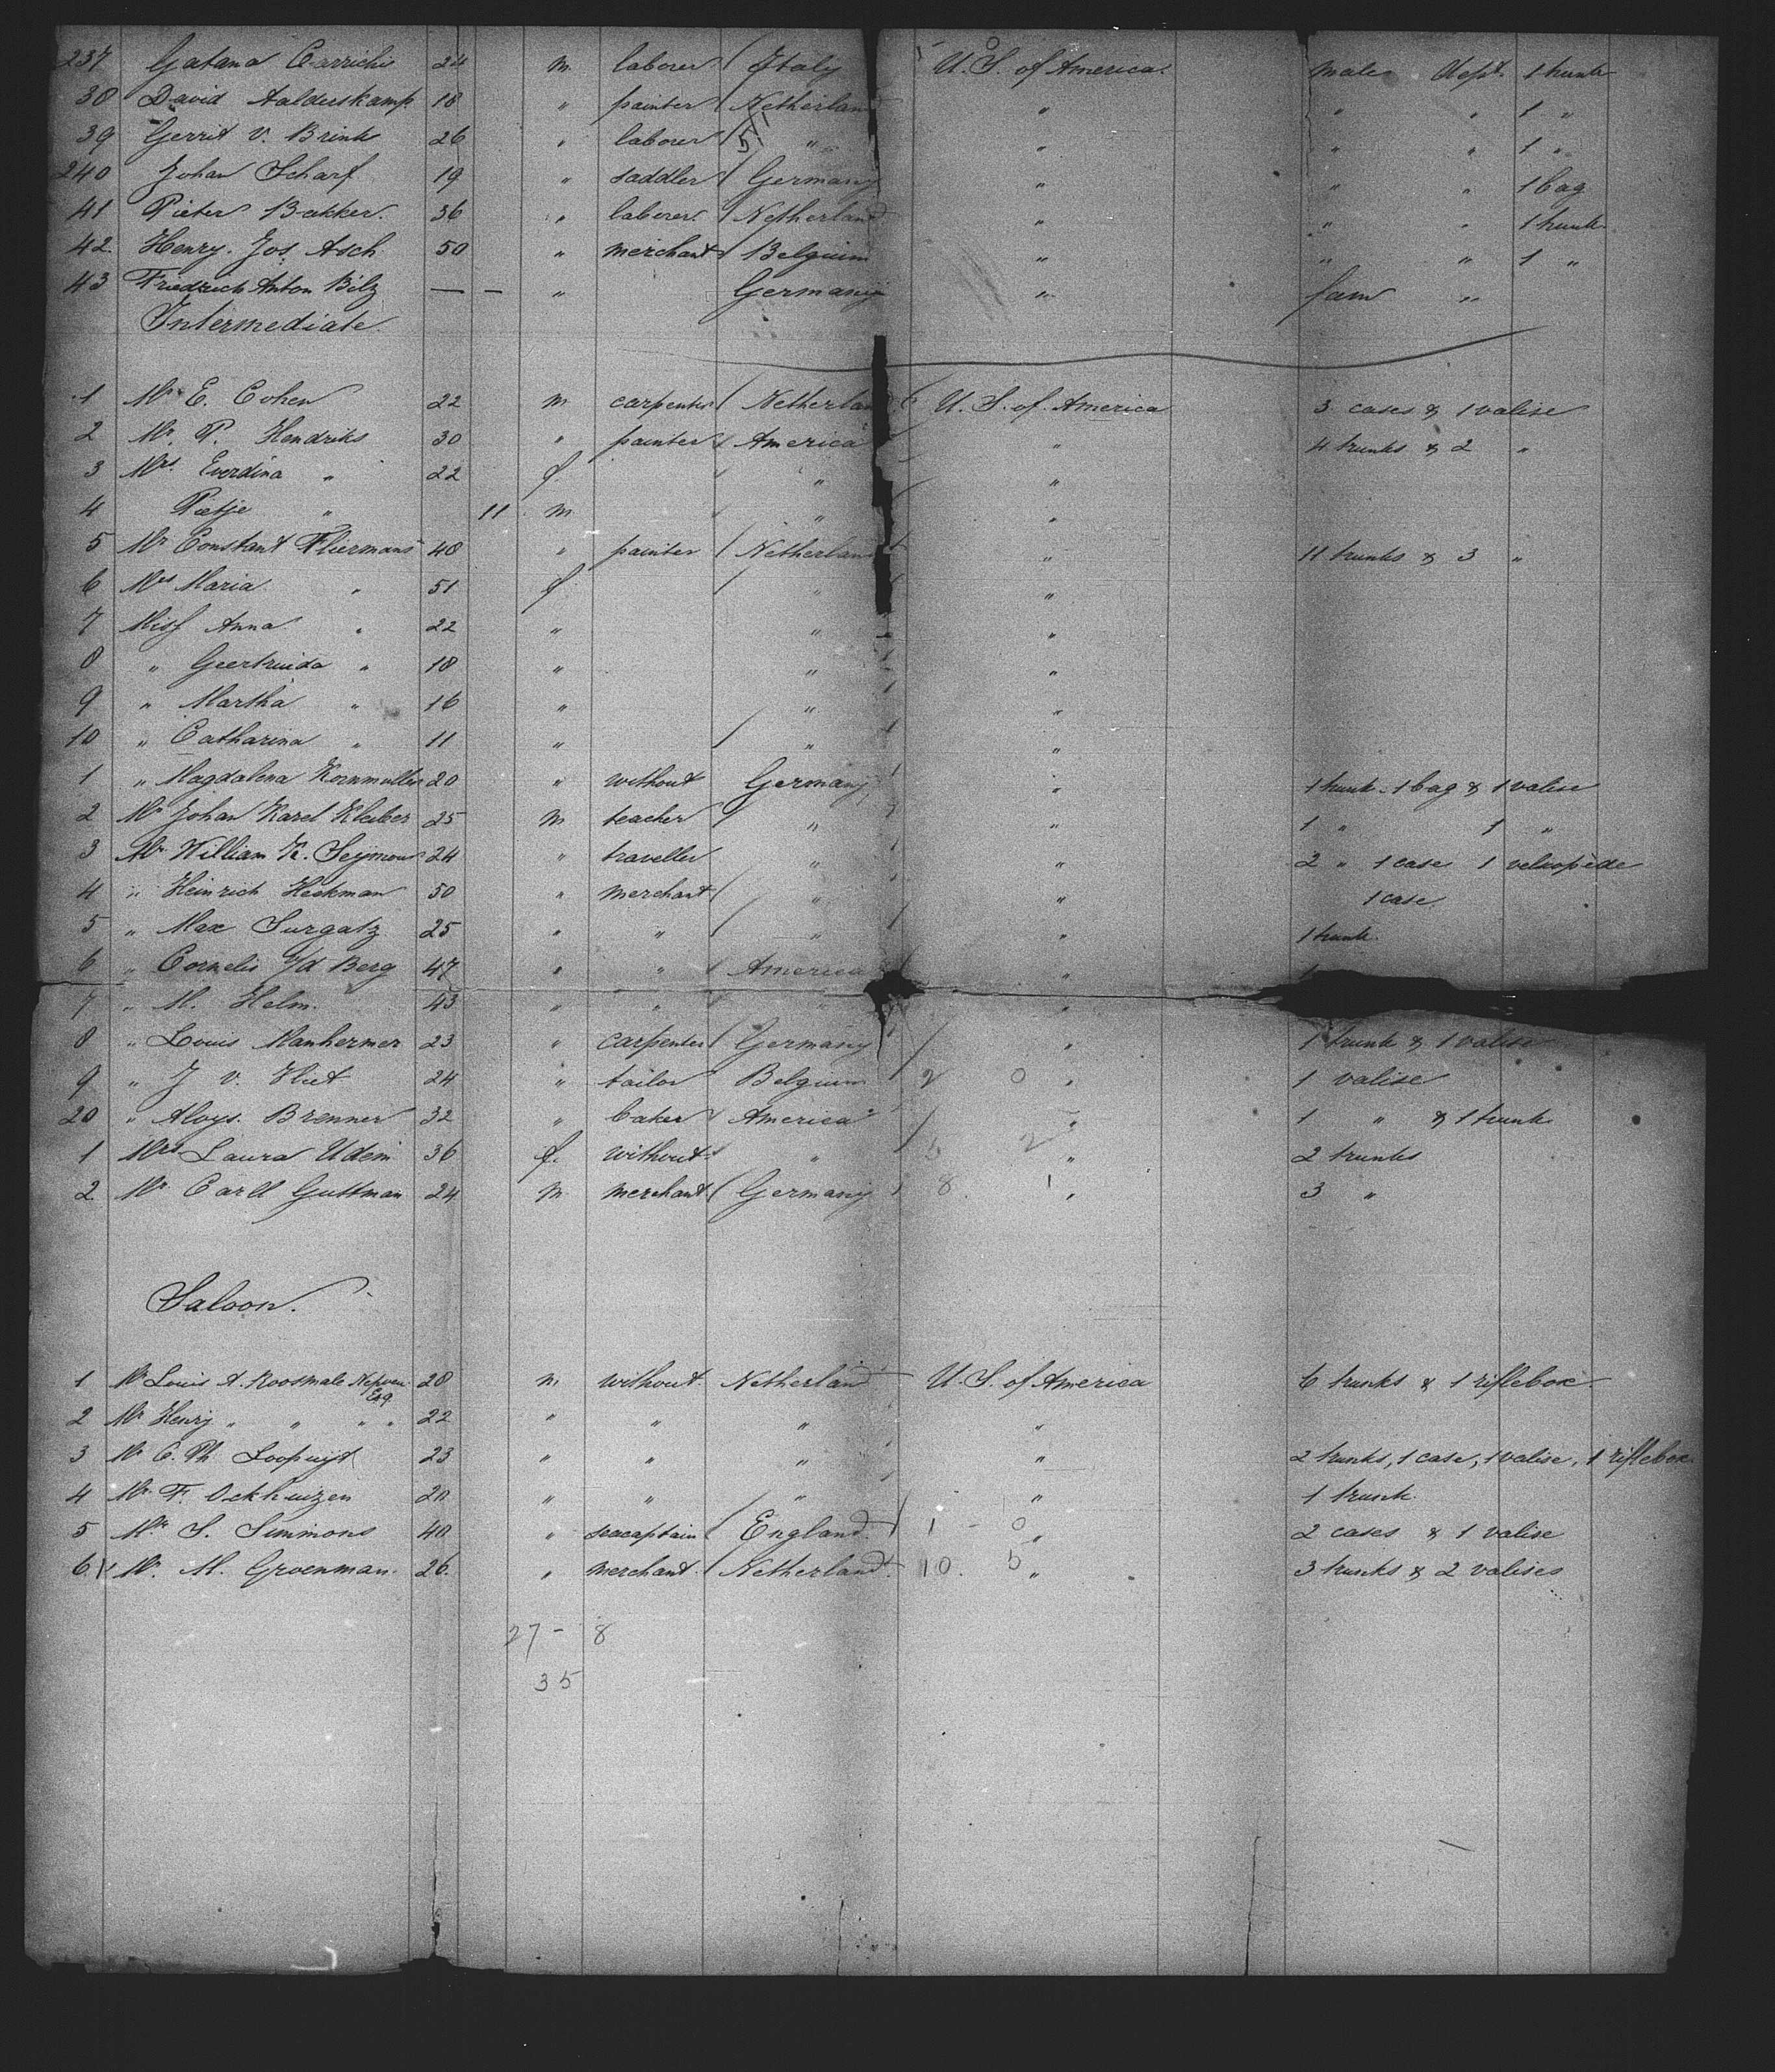 237 Gatana Carrichis 24 m laborer Italy U. S. of America. male dept. 1 trunk
38 David Aalderskamp 18 " painter Netherland " " " 1 "
39 Gerrit v. Brink 26 " laborer " " " " 1 "
240 Johan Scharf 19 " saddler Germany " " " 1 bag
41 Pieter Bakker. 36 " laborer Netherland " " " 1 trunk
42. Henry. Jos. Asch 50 " merchant Belguim " " " 1 "
43 Friedrich Anton Bilz — — " Germany " fam "
Intermediate.
1 Mr E. Cohen 22 m carpenter Netherland U. S. of America 3 cases & 1 valise
2 Mr. P. Hendriks 30 " painter America " 4 trunks & 2 "
3 Mrs. Everdina " 22 f " "
4 Pietje " 11 m " "
5 Mr Constant Fliermans 48 " painter Netherland " 11 trunks & 3 "
6 Mrs Maria " 51 f " "
7 Miss Anna " 22 " " "
8 " Geertruida " 18 " " "
9 " Martha " 16 " " "
10 " Catharina " 11 " " "
1 " Magdalena Kornmuller 20 " without Germany " 1 trunk 1 bag & 1 valise
2 Mr Johan Karel Kleiber 25 m teacher " " 1 " 1 "
3 Mr William K. Seymour 24 " traveller " " 2 " 1 case 1 velocipede
4 " Heinrich Heekman 50 " merchant " " 1 case
5 " Max Surgatz 25 " " " " 1 trunk.
6 " Cornelis v/d Berg 47 " " America "
7 " M. Helm. 43 " " " "
8 " Louis Manhermer 23 " carpenter Germany " 1 trunk & 1 valise
9 " J v. Vliet 24 " tailor Belgium 2 0 " 1 valise
20 " Aloys. Brenner 32 " baker America " 1 " & 1 trunk
1 Mrs Laura Udem 36 f. without " 2 " 2 trunks
2. Mr Carll Guttman 24 m merchant Germany 8 1 " 3 "
Saloon.
1 Mr Louis A. Roosmale Nepveu Esq. 28 m. without. Netherland U. S. of America 6 trunks & 1 riflebox.
2 Mr Henry " " " " 22 " " " "
3 Mr C. Ph Loopuyt 23 " " " " 2 trunks, 1 case, 1 valise, 1 riflebox.
4 Mr. F. Ockhuizen 20 " " " " 1 trunk.
5 Mr S. Simmons 40 " seacaptain England. 1 - 0 " 2 cases & 1 valise
6 Mr. M. Groenman. 26. " merchant. Netherland. 10. 5 " 3 trunks & 2 valises
27 - 8
35